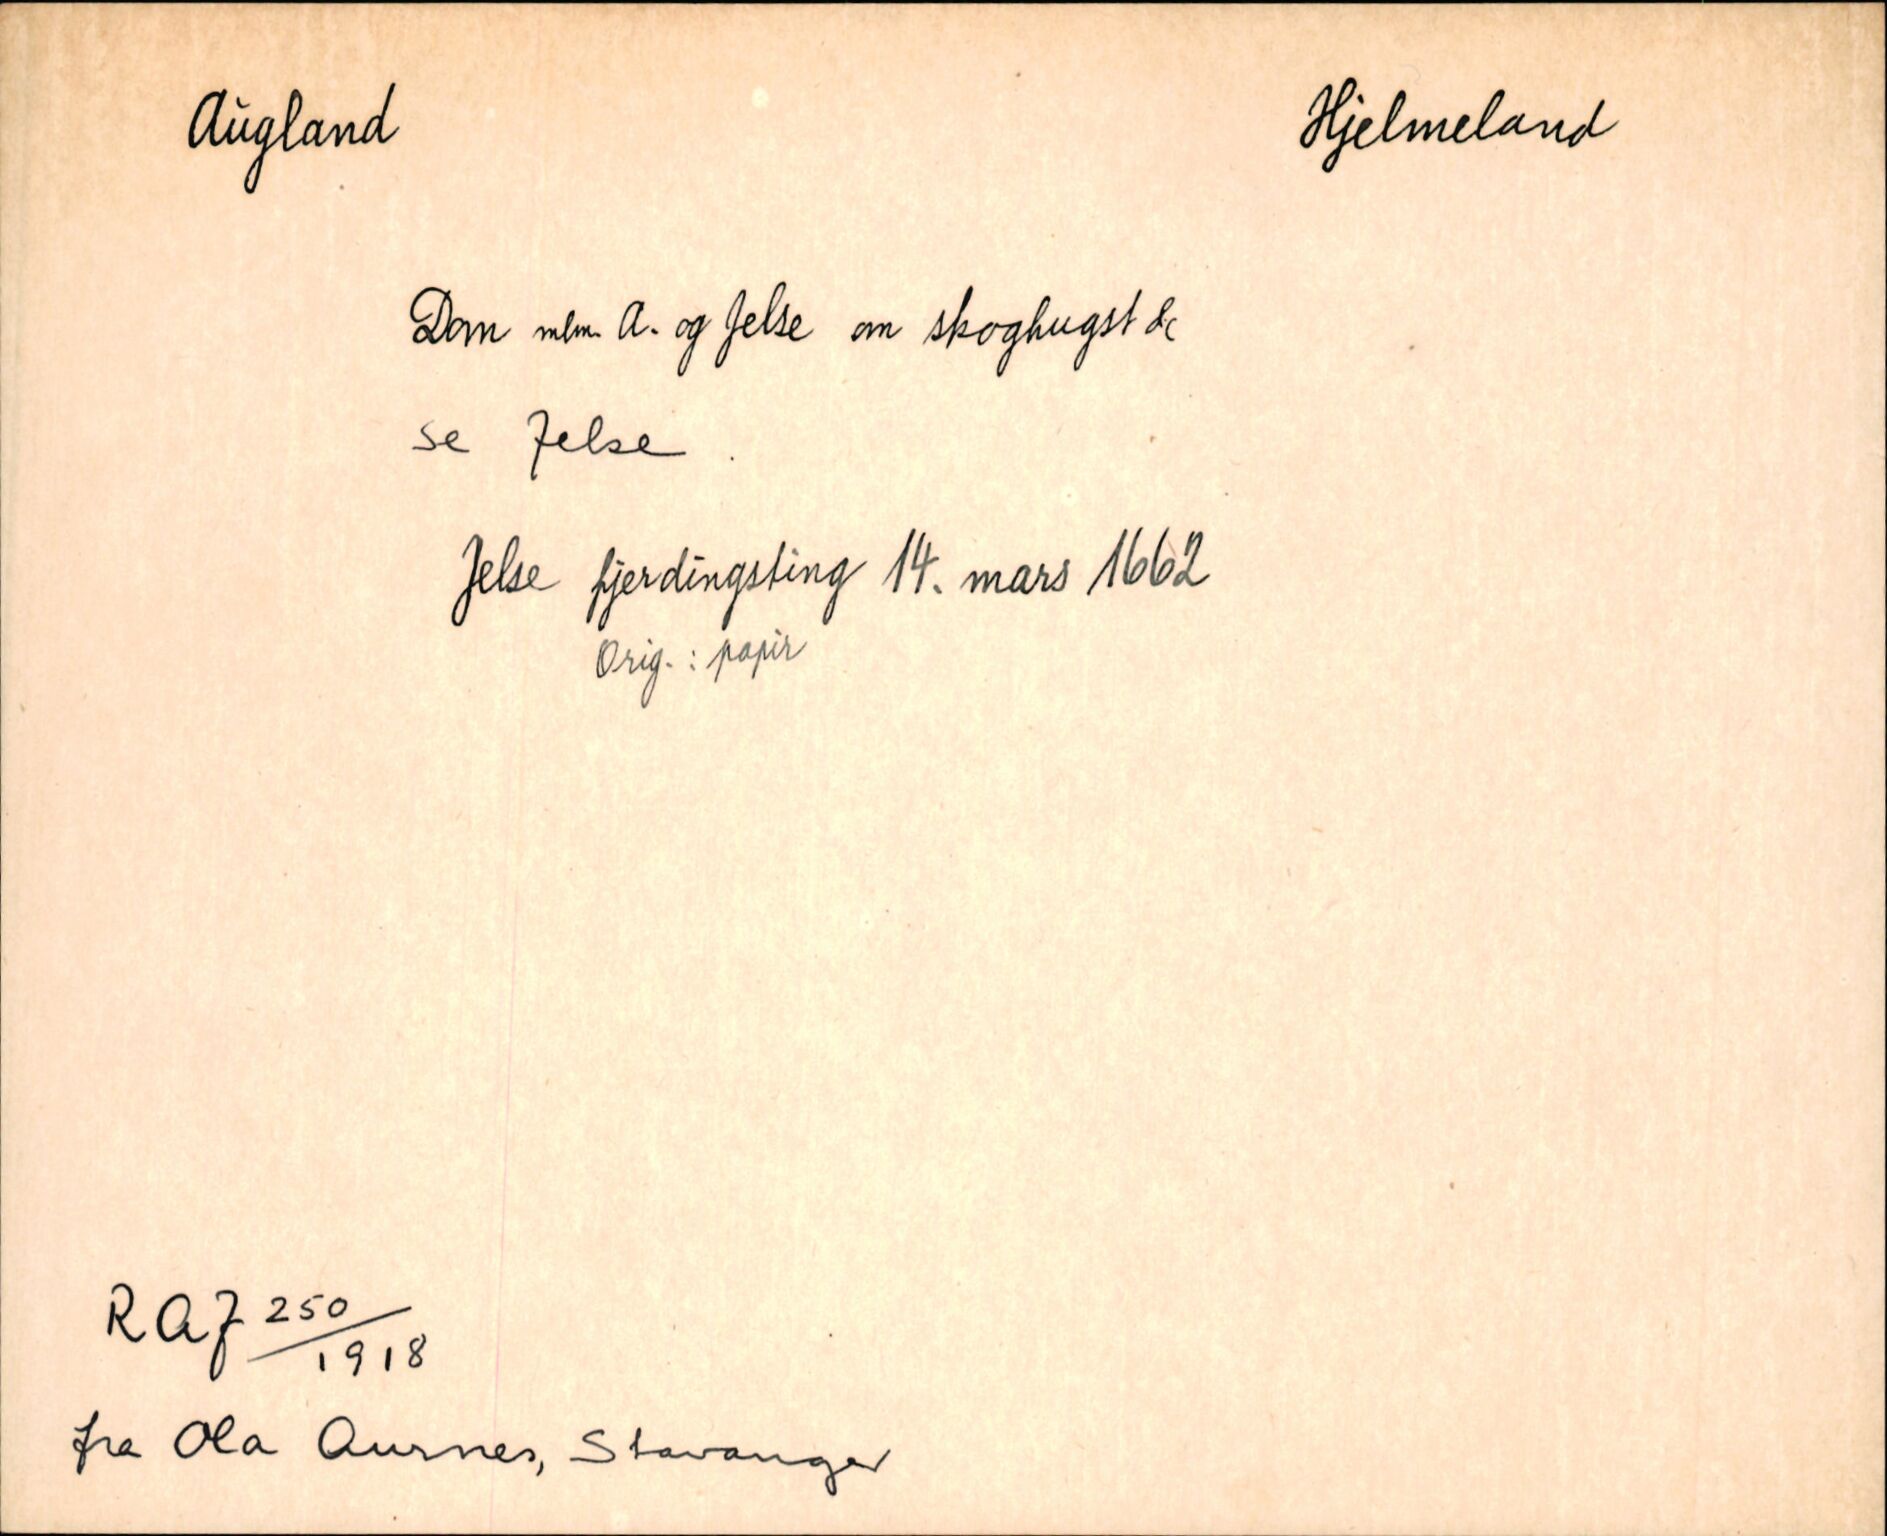 Augland Hjelmeland
Dom mlm. A. og Jelse om skoghugst &c
se Jelse.
Jelse fjerdingsting 14. mars 1662
Orig.: papir
RAJ 250/1918
fra Ola Aurnes, Stavanger